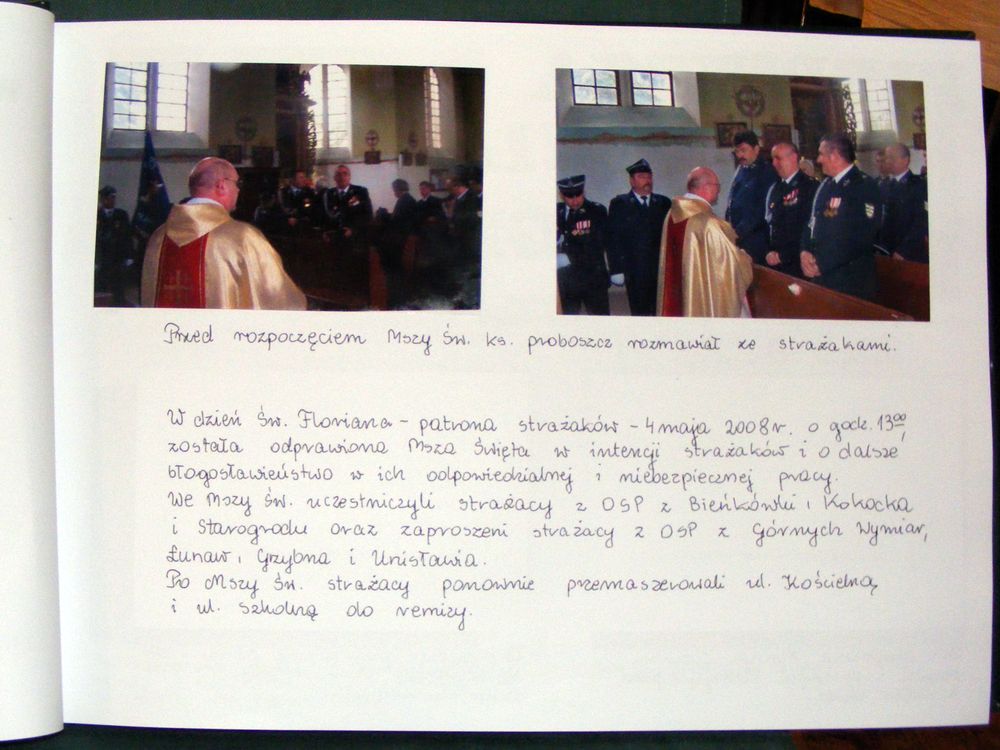 Przed rozpoczęciem Mszy Św. ks. proboszcz rozmawiał ze strażakami.
W dzień Św. Floriana - patrona strażaków - 4 maja 2008 r. o godz. 13⁰⁰,
została odprawiona Msza Święta w intencji strażaków i o dalsze
błogosławieństwo w ich odpowiedzialnej i niebezpiecznej pracy.
We Mszy Św. uczestniczyli strażacy z OSP z Bieńkówki, Kokocka
i Starogrodu oraz zaproszeni strażacy z OSP z Górnych Wymiar,
Łunaw, Grzybna i Unisławia.
Po Mszy Św. strażacy ponownie przemaszerowali ul. Kościelną
i ul. Szkolną do remizy.